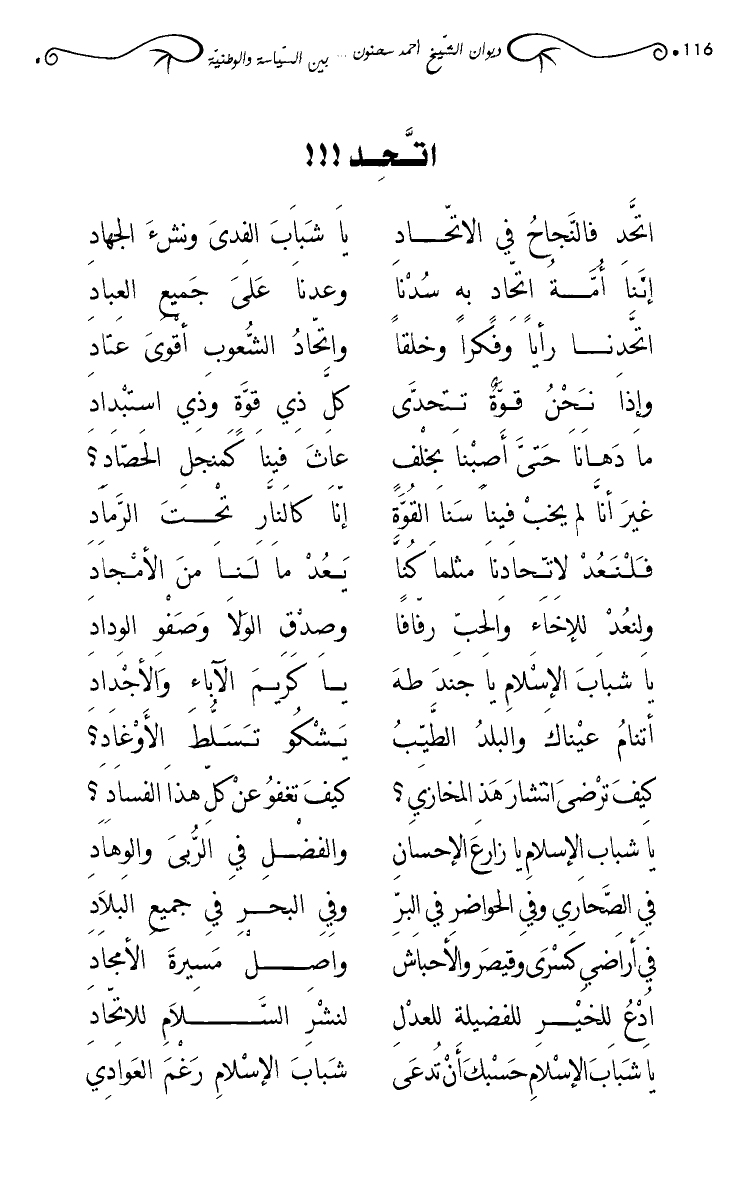 116 ديوان الشّيخ أحمد سحنون ... بين السّياسة والوطنيّة
اتَّحِد !!!
اتَّحِد فالنَّجاحُ في الاتّحاد يا شَبابَ الفِدى ونشءَ الجهادِ
إنَّنا أُمَّةُ اتحّادٍ به سُدْنا وعدنا عَلَى جَميعِ العبادِ
اتَّحدنا رأياً وفكراً وخلقاً واتحّادُ الشُّعوبِ أقْوىَ عتاد
وإذا نَحْنُ قوَّةٌ تتحدَّى كلَّ ذي قوَّةٍ وذي استبْداد
ما دَهانَا حَتىَّ أُصِبْنا بخلْفٍ عاثَ فينا كَمنجلِ الحَصّادِ؟
غيرَ أنَّا لم يخبْ فينا سَنا القوَّةِ إنّا كالنارِ تحْتَ الرَّمادِ
فَلْنَعُدْ لاتّحادنا مثلما كُنَّا يَعُدْ ما لَنا منَ الأمْجادِ
ولنعُدْ للإخاء والحبّ رفاقا وصدْقِ الوَلا وَصَفوِ الودادِ
يا شبابَ الإسْلامِ يا جندَ طهَ يا كَريمَ الآباءِ وَالأجْدادِ
أتنامُ عيْناك والبلدُ الطَّيّبُ يَشْكُو تَسَلُّطَ الأوْغادِ؟
كيفَ ترْضى انتشارَ هَذِ المخازي؟ كيفَ تغفو عنْ كلّ هذا الفسادِ؟
يا شباب الإسلامِ يا زارعَ الإحسان والفضْلِ في الرُّبىَ والوهادِ
في الصَّحاري وفي الحواضرِ في البرّ وفي البحرِ في جميعِ البلادِ
في أراضي كسْرَى وقيصَر والأحباشِ واصلْ مَسيرةَ الأمجادِ
ادْعُ للخيْرِ للفضيلة للعدْلِ لنشْرِ السَّلاَمِ للاتحّاد
يا شَبابَ الإسْلامِ حَسْبكَ أنْ تُدعَى شَبابَ الإسْلامِ رَغْمَ العَوادِي